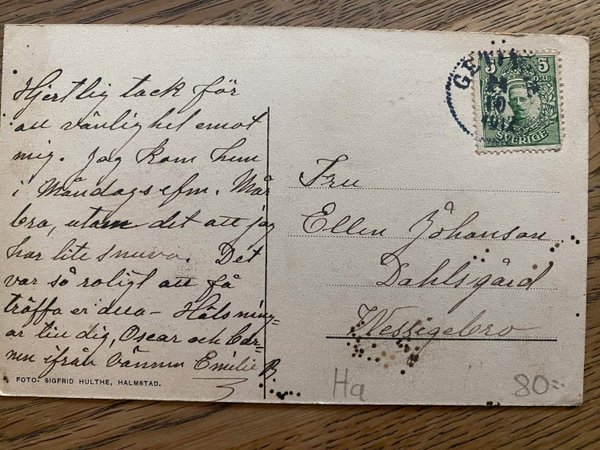 Hjertlig tack för
all vänlighet emot
mig. Jag kom hem
i Måndags efm. Mår
bra, utom det att jag
har lite snuva. Det
var så roligt att få
träffa er dua – Hälsning-
ar till dig, Oscar och bar-
nen ifrån vännen Emilie B.
FOTO: SIGFRID HULTHE, HALMSTAD.
5 5
ÖRE
SVERIGE
Fru
Ellen Johanson
Dahlsgård
Wessigebro
Ha
80:-